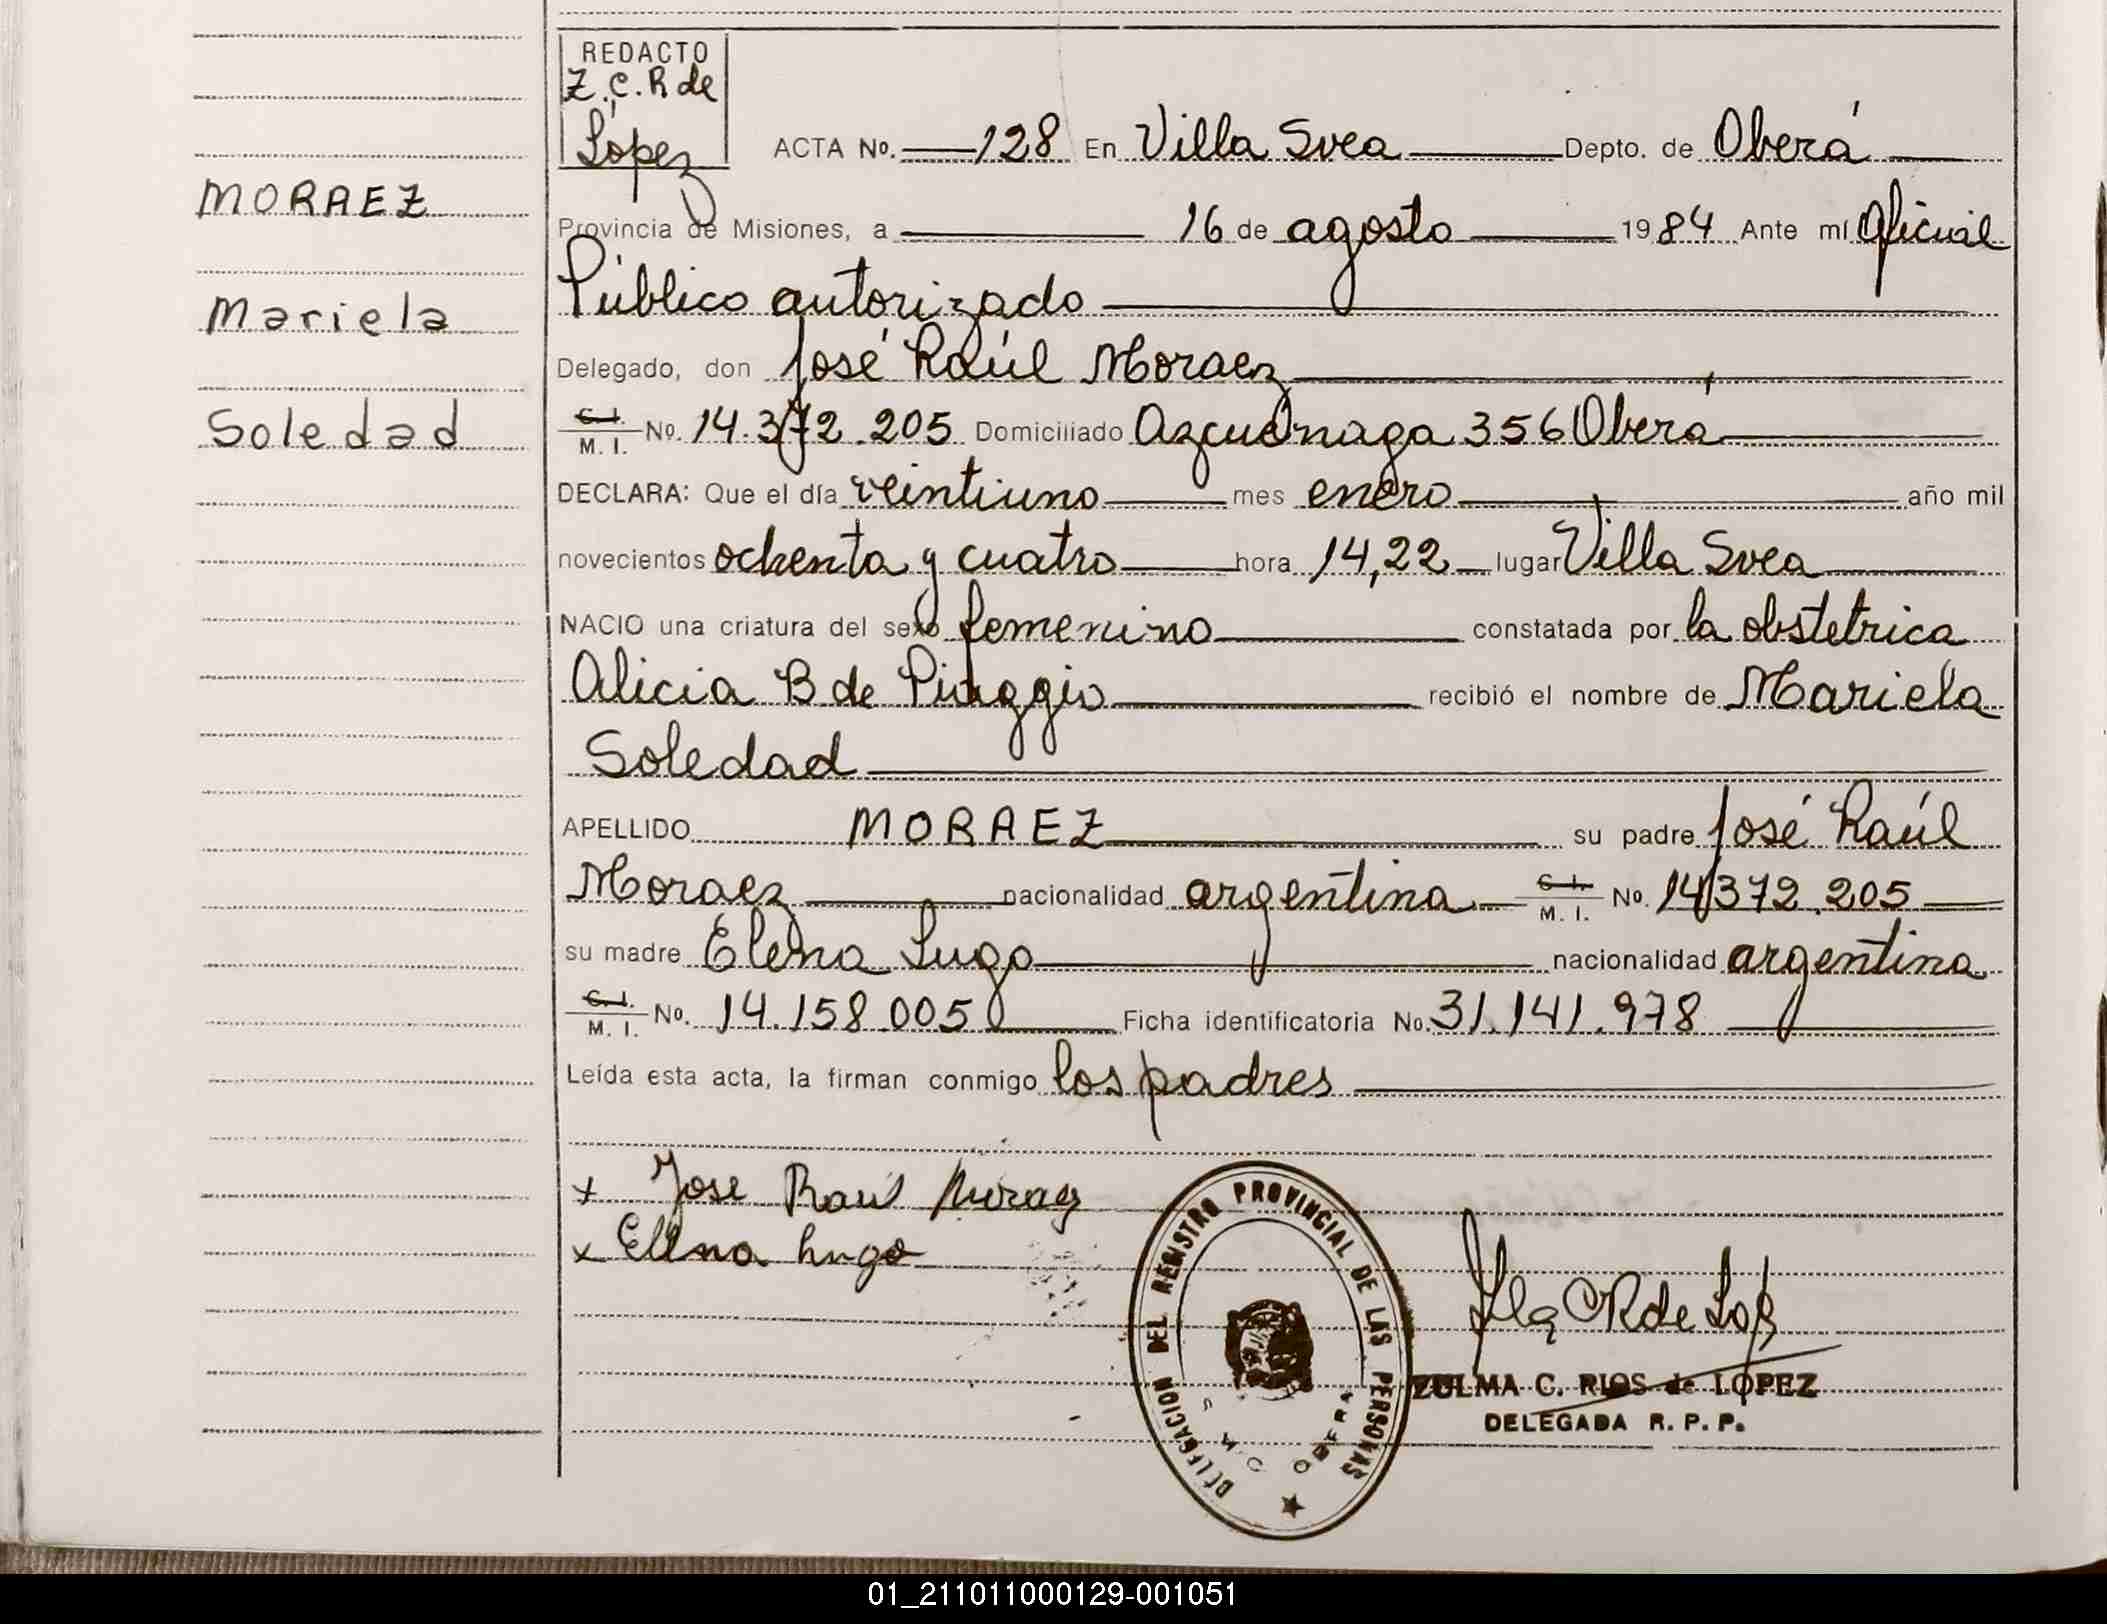 REDACTO
Z.C.R de
López
ACTA No. 128 En Villa Svea Depto. de Oberá
MORAEZ
Provincia de Misiones, a 16 de agosto 1984 Ante mí Oficial
Público autorizado
Mariela
Delegado, don José Raúl Moraez
Soledad
C. I. M. I. No. 14.372.205 Domiciliado Azcuénaga 356 Oberá
DECLARA: Que el día veintiuno mes enero año mil
novecientos ochenta y cuatro hora 14,22 lugar Villa Svea
NACIO una criatura del sexo femenino constatada por la obstetrica
Alicia B de Piaggio recibió el nombre de Mariela
Soledad
APELLIDO MORAEZ su padre José Raúl
Moraez nacionalidad argentina C. I. M. I. No. 14.372.205
su madre Elena Lugo nacionalidad argentina
C. I. M. I. No. 14.158.005 Ficha identificatoria No. 31.141.978
Leída esta acta, la firman conmigo los padres
x Jose Raul Moraez
x Elena Lugo
DELEGACION DEL REGISTRO PROVINCIAL DE LAS PERSONAS
OBERA
ZULMA C. RIOS de LOPEZ
DELEGADA R. P. P.
01_211011000129-001051